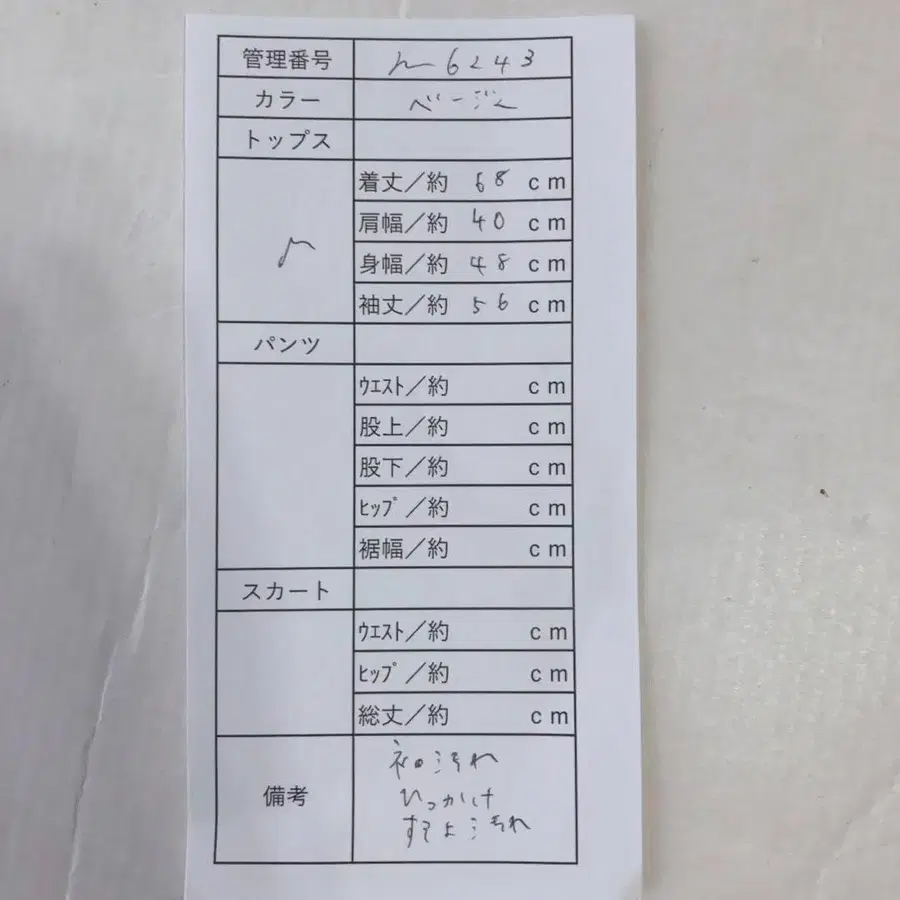 管理番号 m6243
カラー ベージュ
トップス
M
着丈／約 68 cm
肩幅／約 40 cm
身幅／約 48 cm
袖丈／約 56 cm
パンツ
ウエスト／約 cm
股上／約 cm
股下／約 cm
ヒップ／約 cm
裾幅／約 cm
スカート
ウエスト／約 cm
ヒップ／約 cm
総丈／約 cm
備考
袖汚れ
ひっかけ
汚れ